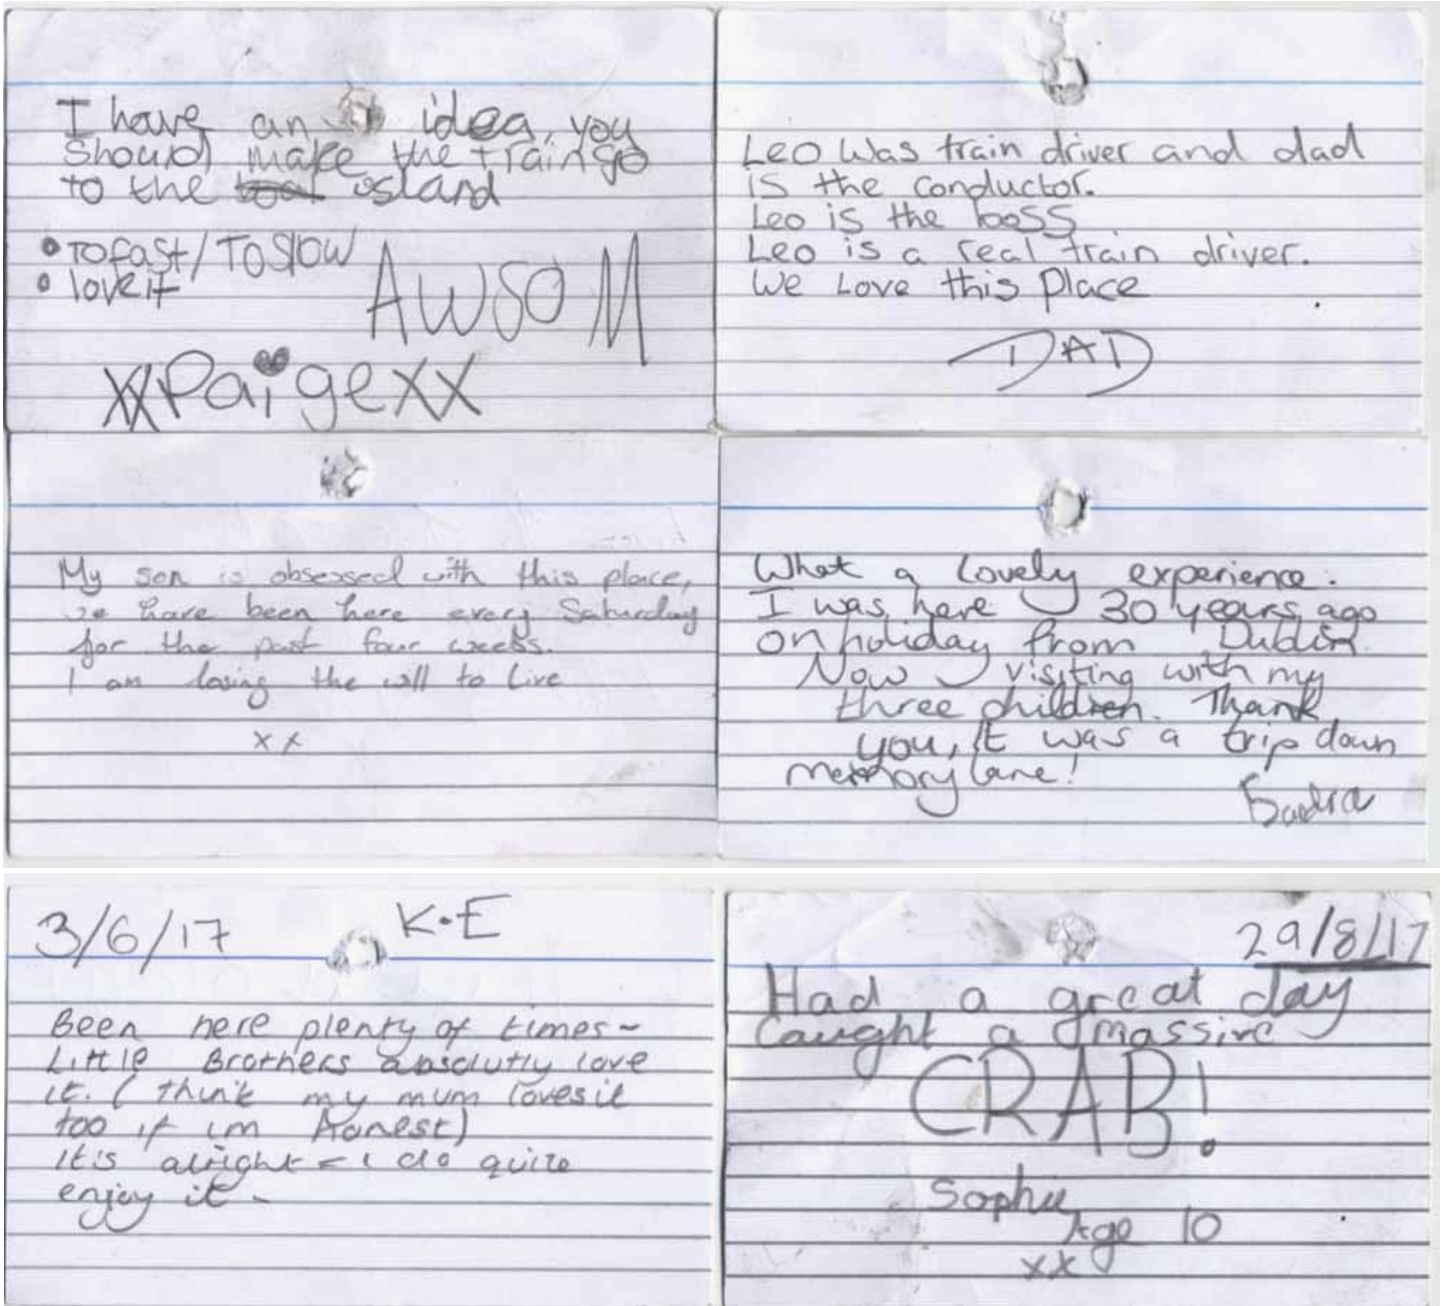 I have an idea, you
should make the train go
to the island
• TO fast / TO SlOW
• love it
AWSOM
xxPaigexx
Leo was train driver and dad
is the conductor.
Leo is the boss
Leo is a real train driver.
We Love this Place
DAD
My son is obsessed with this place,
we have been here every Saturday
for the past four weeks.
I am losing the will to live
x x
What a lovely experience.
I was here 30 years ago
on holiday from Dublin.
Now visiting with my
three children. Thank
you, it was a trip down
memory lane!
3/6/17 K.E
Been here plenty of times~
Little Brothers absolutly love
it. (think my mum loves it
too if im honest)
it's alright - i do quite
enjoy it -
29/8/17
Had a great day
Caught a massive
CRAB!
Sophie
Age 10
xx